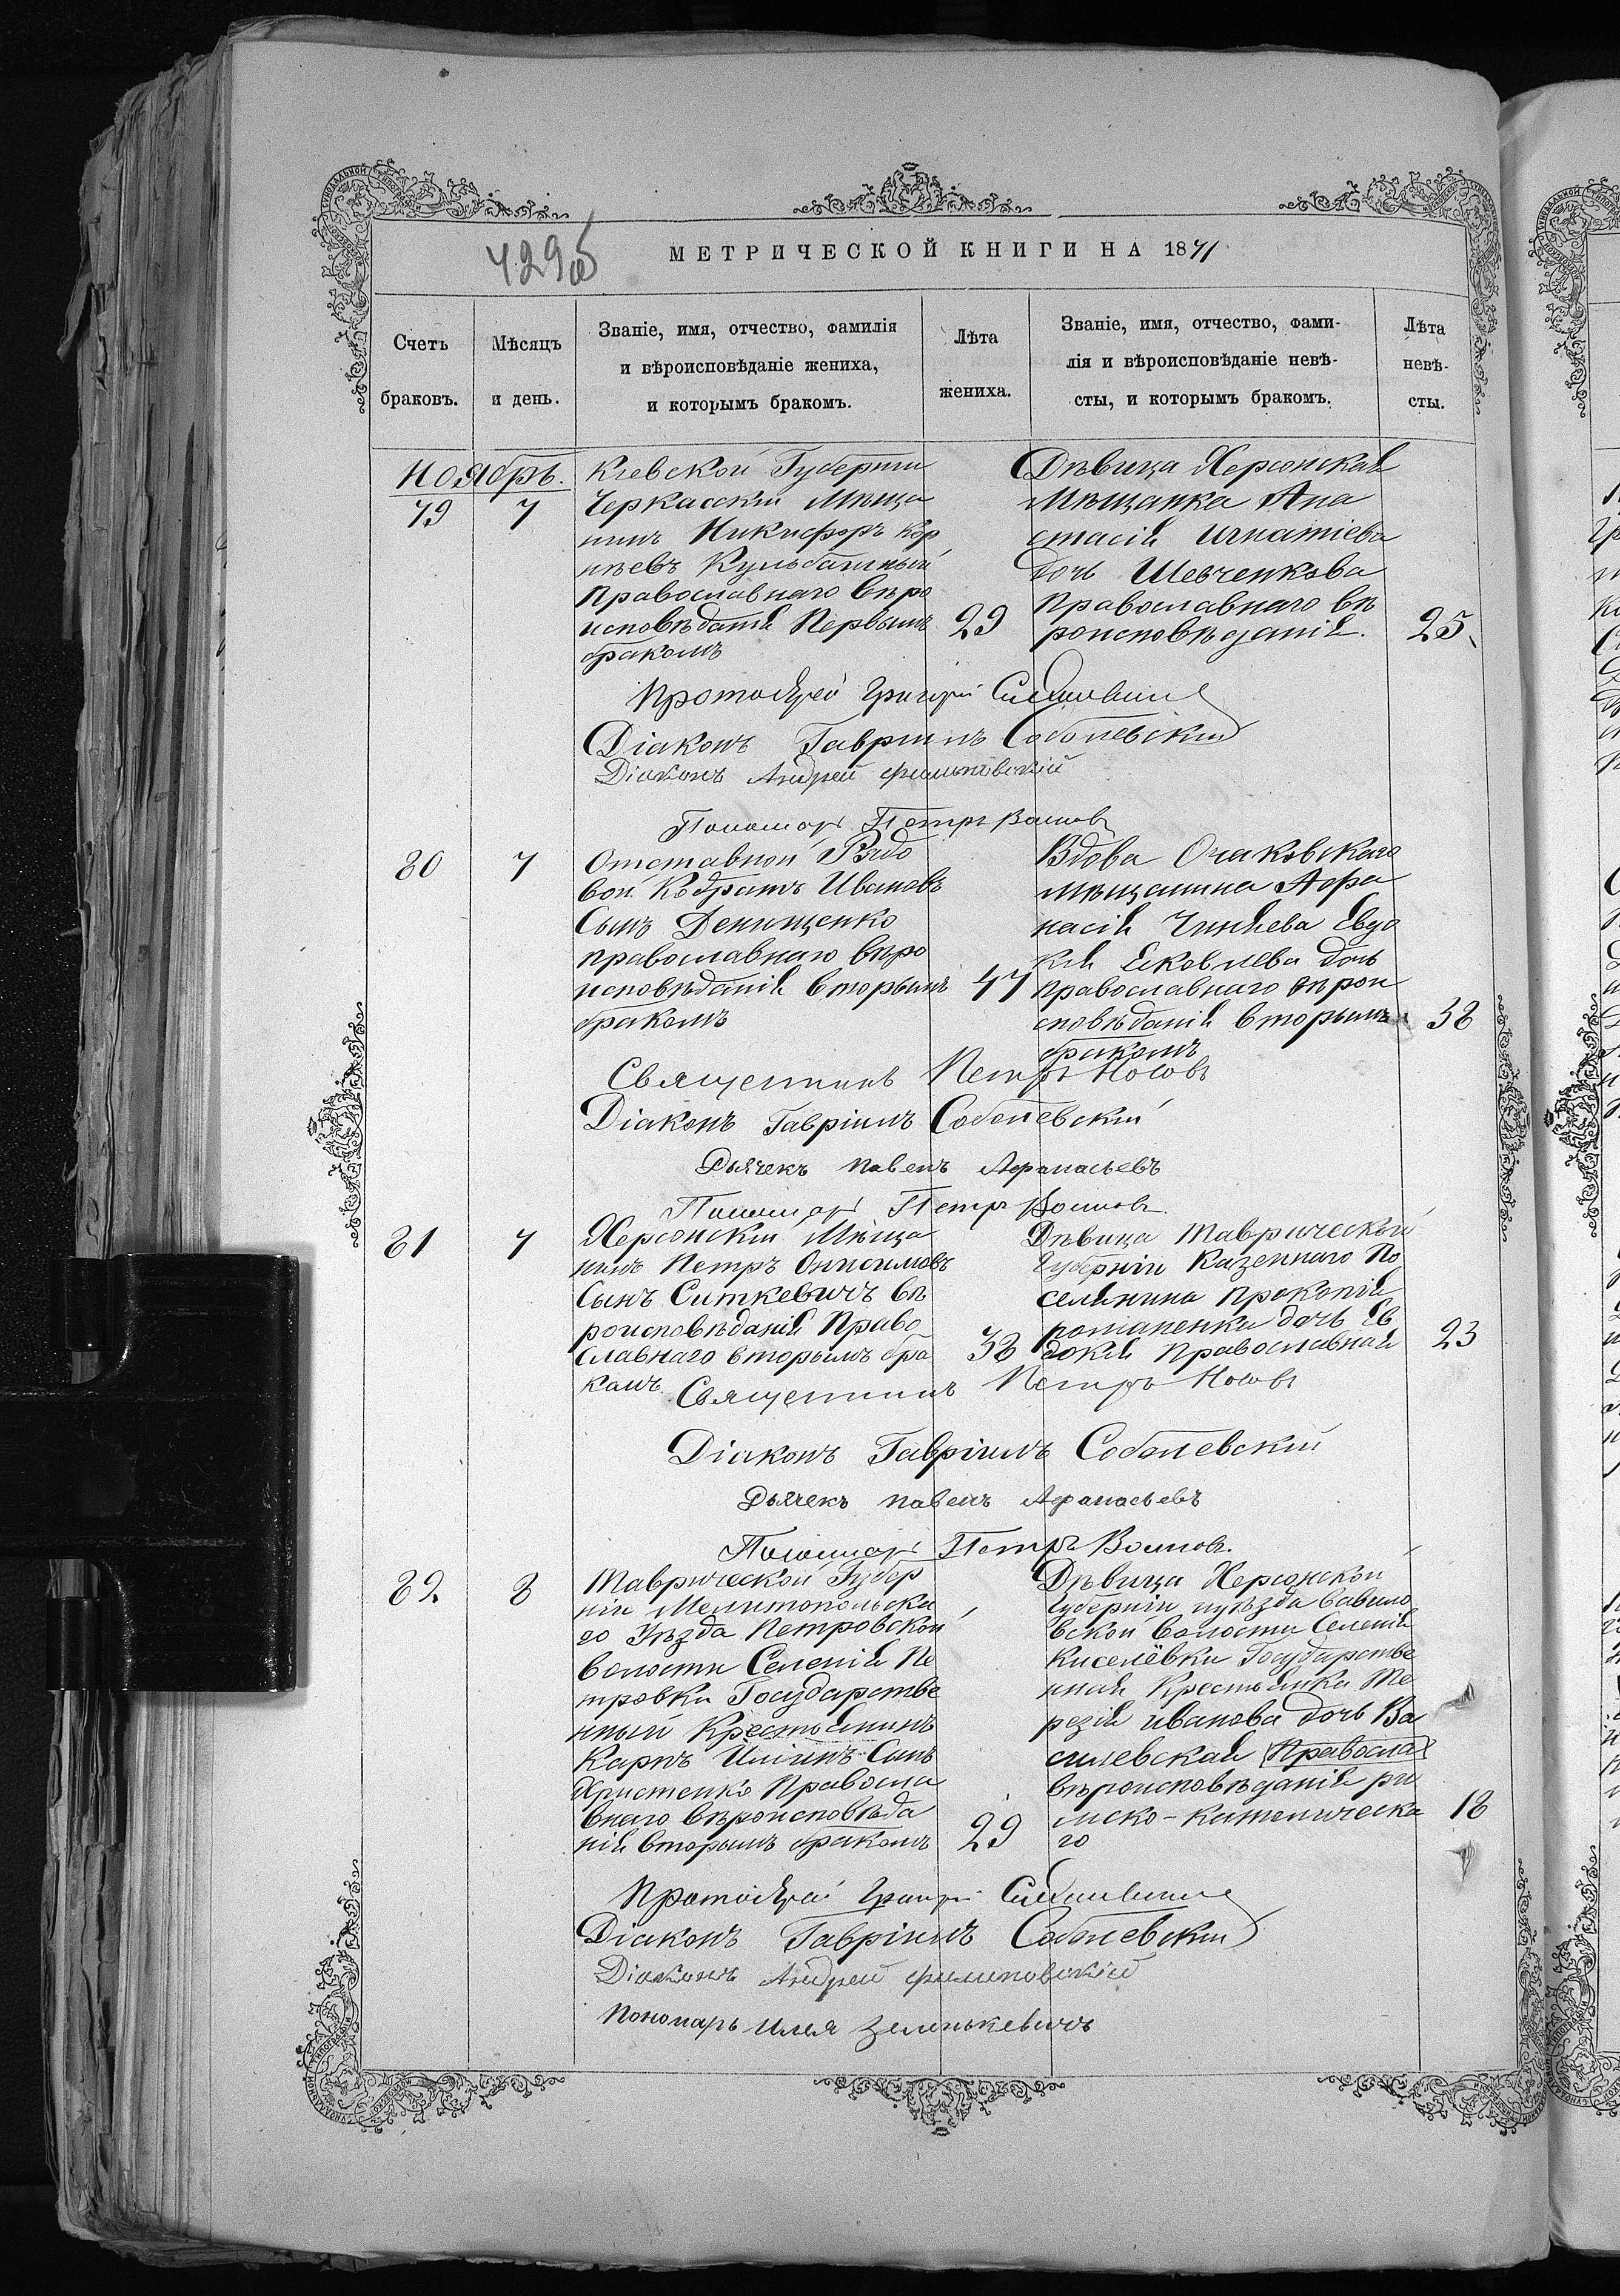 МЕТРИЧЕСКОЙ КНИГИ НА 1871
Счетъ браковъ.
Мѣсяцъ и день.
Званіе, имя, отчество, фамилія
и вѣроисповѣданіе жениха,
и которымъ бракомъ.
Лѣта жениха.
Званіе, имя, отчество, фами-
лія и вѣроисповѣданіе невѣ-
сты, и которымъ бракомъ.
Лѣта невѣ-
сты.
Ноябрь.
79 7
Кіевской Губерніи
Черкасскій Мѣща
нинъ Никифоръ Кор
нѣевъ Кульбашный
Православнаго вѣро
исповѣданія Первымъ
бракомъ
29
Дѣвица Херсонская
Мѣщанка Ана
стасія Игнатіева
дочь Шевченкова
Православнаго вѣ
роисповѣданія.
25
Протоіерей Григорій
Діаконъ Гавріилъ Соболевскій
Діаконъ Андрей Филиповскій
Пономарь Петръ Воиновъ
80 7
Отставной Рядо
вой Кодратъ Ивановъ
Сынъ Денищенко
православнаго вѣро
исповѣданія вторымъ
бракомъ
47
Вдова Очаковскаго
мѣщанина Афа
насія Евдо
кія Яковлева дочь
Православнаго вѣрои
сповѣданія вторымъ
бракомъ
38
Священникъ Петръ Носовъ
Діаконъ Гавріилъ Соболевскій
Дьячекъ Павелъ Афанасьевъ
Пономарь Петръ Воиновъ.
81 7
Херсонскій Мѣща
нинъ Петръ Онисимовъ
Сынъ Ситкевичъ вѣ
роисповѣданія Право
славнаго вторымъ бра
комъ
38
Дѣвица Таврической
Губерніи Казеннаго По
селянина Прокопія
Романенка дочь Ев
докія Православная
23
Священникъ Петръ Носовъ
Діаконъ Гавріилъ Соболевскій
Дьячекъ Павелъ Афанасьевъ
Пономарь Петръ Воиновъ.
82 8
Таврической Губер
ніи Мелитопольска
го Уѣзда Петровской
волости Селенія Пе
тровки Государстве
нный Крестьянинъ
Карпъ Ильинъ Сынъ
Христенко Правосла
внаго вѣроисповѣда
нія вторымъ бракомъ
29
Дѣвица Херсонской
Губерніи и уѣзда Вавило
вской волости Селенія
Киселёвки Государстве
нная Крестьянка Те
резія Иванова дочь Ва
силевская Правосла
вѣроисповѣданія ри
мско-католическа
го
18
Протоіерей Григорій
Діаконъ Гавріилъ Соболевскій
Діаконъ Андрей Филиповскій
Пономарь Илья Зеленькевичъ